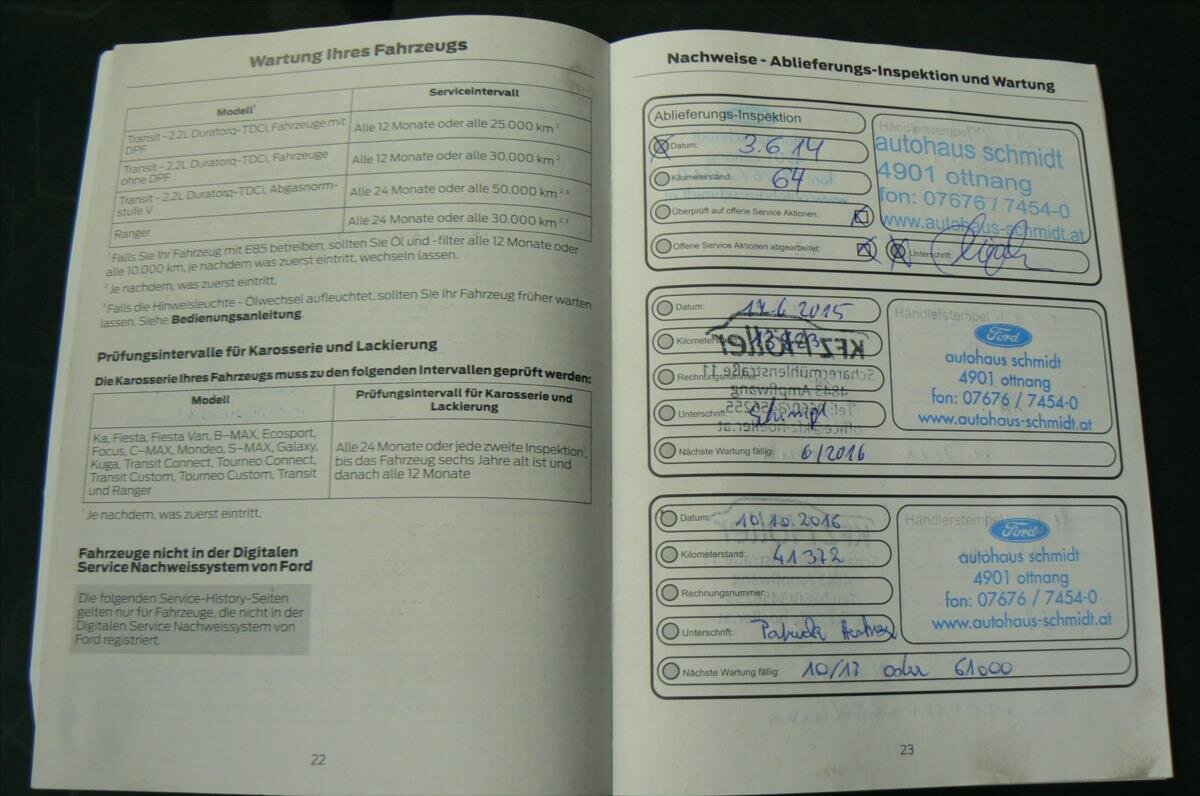 Wartung Ihres Fahrzeugs
Modell¹
Serviceintervall
Transit - 2.2L Duratorq-TDCi, Fahrzeuge mit
DPF
Alle 12 Monate oder alle 25.000 km ²
Transit - 2.2L Duratorq-TDCi, Fahrzeuge
ohne DPF
Alle 12 Monate oder alle 30.000 km ²
Transit - 2.2L Duratorq-TDCi, Abgasnorm-
stufe V
Alle 24 Monate oder alle 50.000 km ²,³
Ranger
Alle 24 Monate oder alle 30.000 km ²,³
¹Falls Sie Ihr Fahrzeug mit E85 betreiben, sollten Sie Öl und -filter alle 12 Monate oder
alle 10.000 km, je nachdem was zuerst eintritt, wechseln lassen.
² Je nachdem, was zuerst eintritt.
³ Falls die Hinweisleuchte - Ölwechsel aufleuchtet, sollten Sie Ihr Fahrzeug früher warten
lassen. Siehe Bedienungsanleitung.
Prüfungsintervalle für Karosserie und Lackierung
Die Karosserie Ihres Fahrzeugs muss zu den folgenden Intervallen geprüft werden:
Modell
Prüfungsintervall für Karosserie und
Lackierung
Ka, Fiesta, Fiesta Van, B-MAX, Ecosport,
Focus, C-MAX, Mondeo, S-MAX, Galaxy,
Kuga, Transit Connect, Tourneo Connect,
Transit Custom, Tourneo Custom, Transit
und Ranger
Alle 24 Monate oder jede zweite Inspektion¹,
bis das Fahrzeug sechs Jahre alt ist und
danach alle 12 Monate
¹ Je nachdem, was zuerst eintritt.
Fahrzeuge nicht in der Digitalen
Service Nachweissystem von Ford
Die folgenden Service-History-Seiten
gelten nur für Fahrzeuge, die nicht in der
Digitalen Service Nachweissystem von
Ford registriert.
22
Nachweise - Ablieferungs-Inspektion und Wartung
Ablieferungs-Inspektion
Datum: 3.6.14
Kilometerstand: 64
Überprüft auf offene Service Aktionen:
Offene Service Aktionen abgearbeitet:
Händlerstempel
autohaus schmidt
4901 ottnang
fon: 07676 / 7454-0
www.autohaus-schmidt.at
Unterschrift:
Datum: 17.6.2015
Kilometerstand:
Rechnungsnummer:
Unterschrift:
Nächste Wartung fällig: 6/2016
Händlerstempel
Ford
autohaus schmidt
4901 ottnang
fon: 07676 / 7454-0
www.autohaus-schmidt.at
Datum: 10.10.2016
Kilometerstand: 41372
Rechnungsnummer:
Unterschrift:
Nächste Wartung fällig: 10/17 oder 61000
Händlerstempel
Ford
autohaus schmidt
4901 ottnang
fon: 07676 / 7454-0
www.autohaus-schmidt.at
23